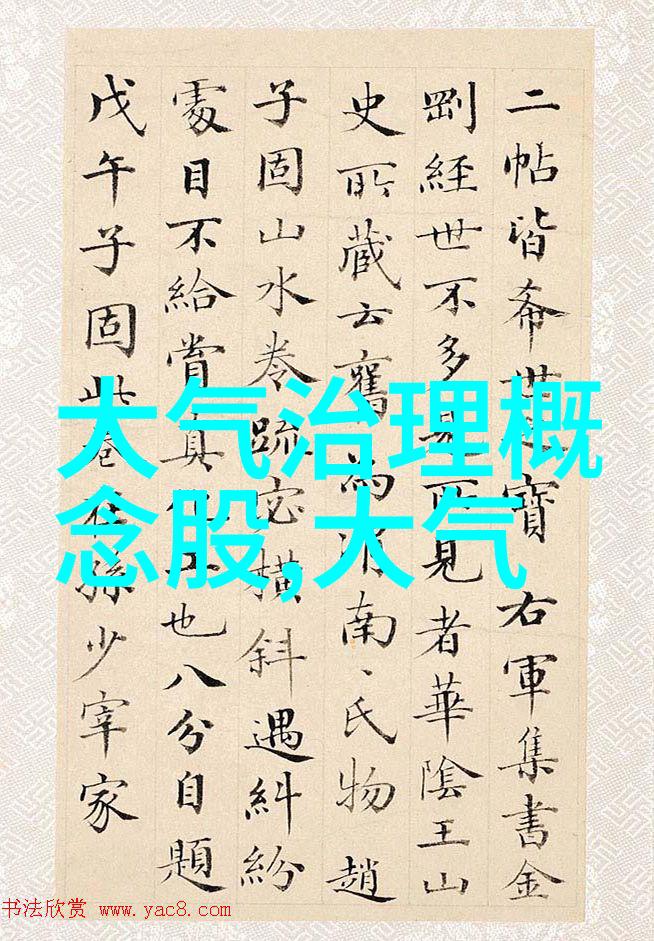 二帖皆希世之寶 右軍集書金
剛經世不多見所見者華陰王山
史所藏云舊為南、氏物趙
子固山水卷疏密橫斜遇糾紛
處目不給賞真工也八分自題
戊午子固此卷在孫少宰家
大气治理概
念股,大气
书法欣赏 www.yac8.com